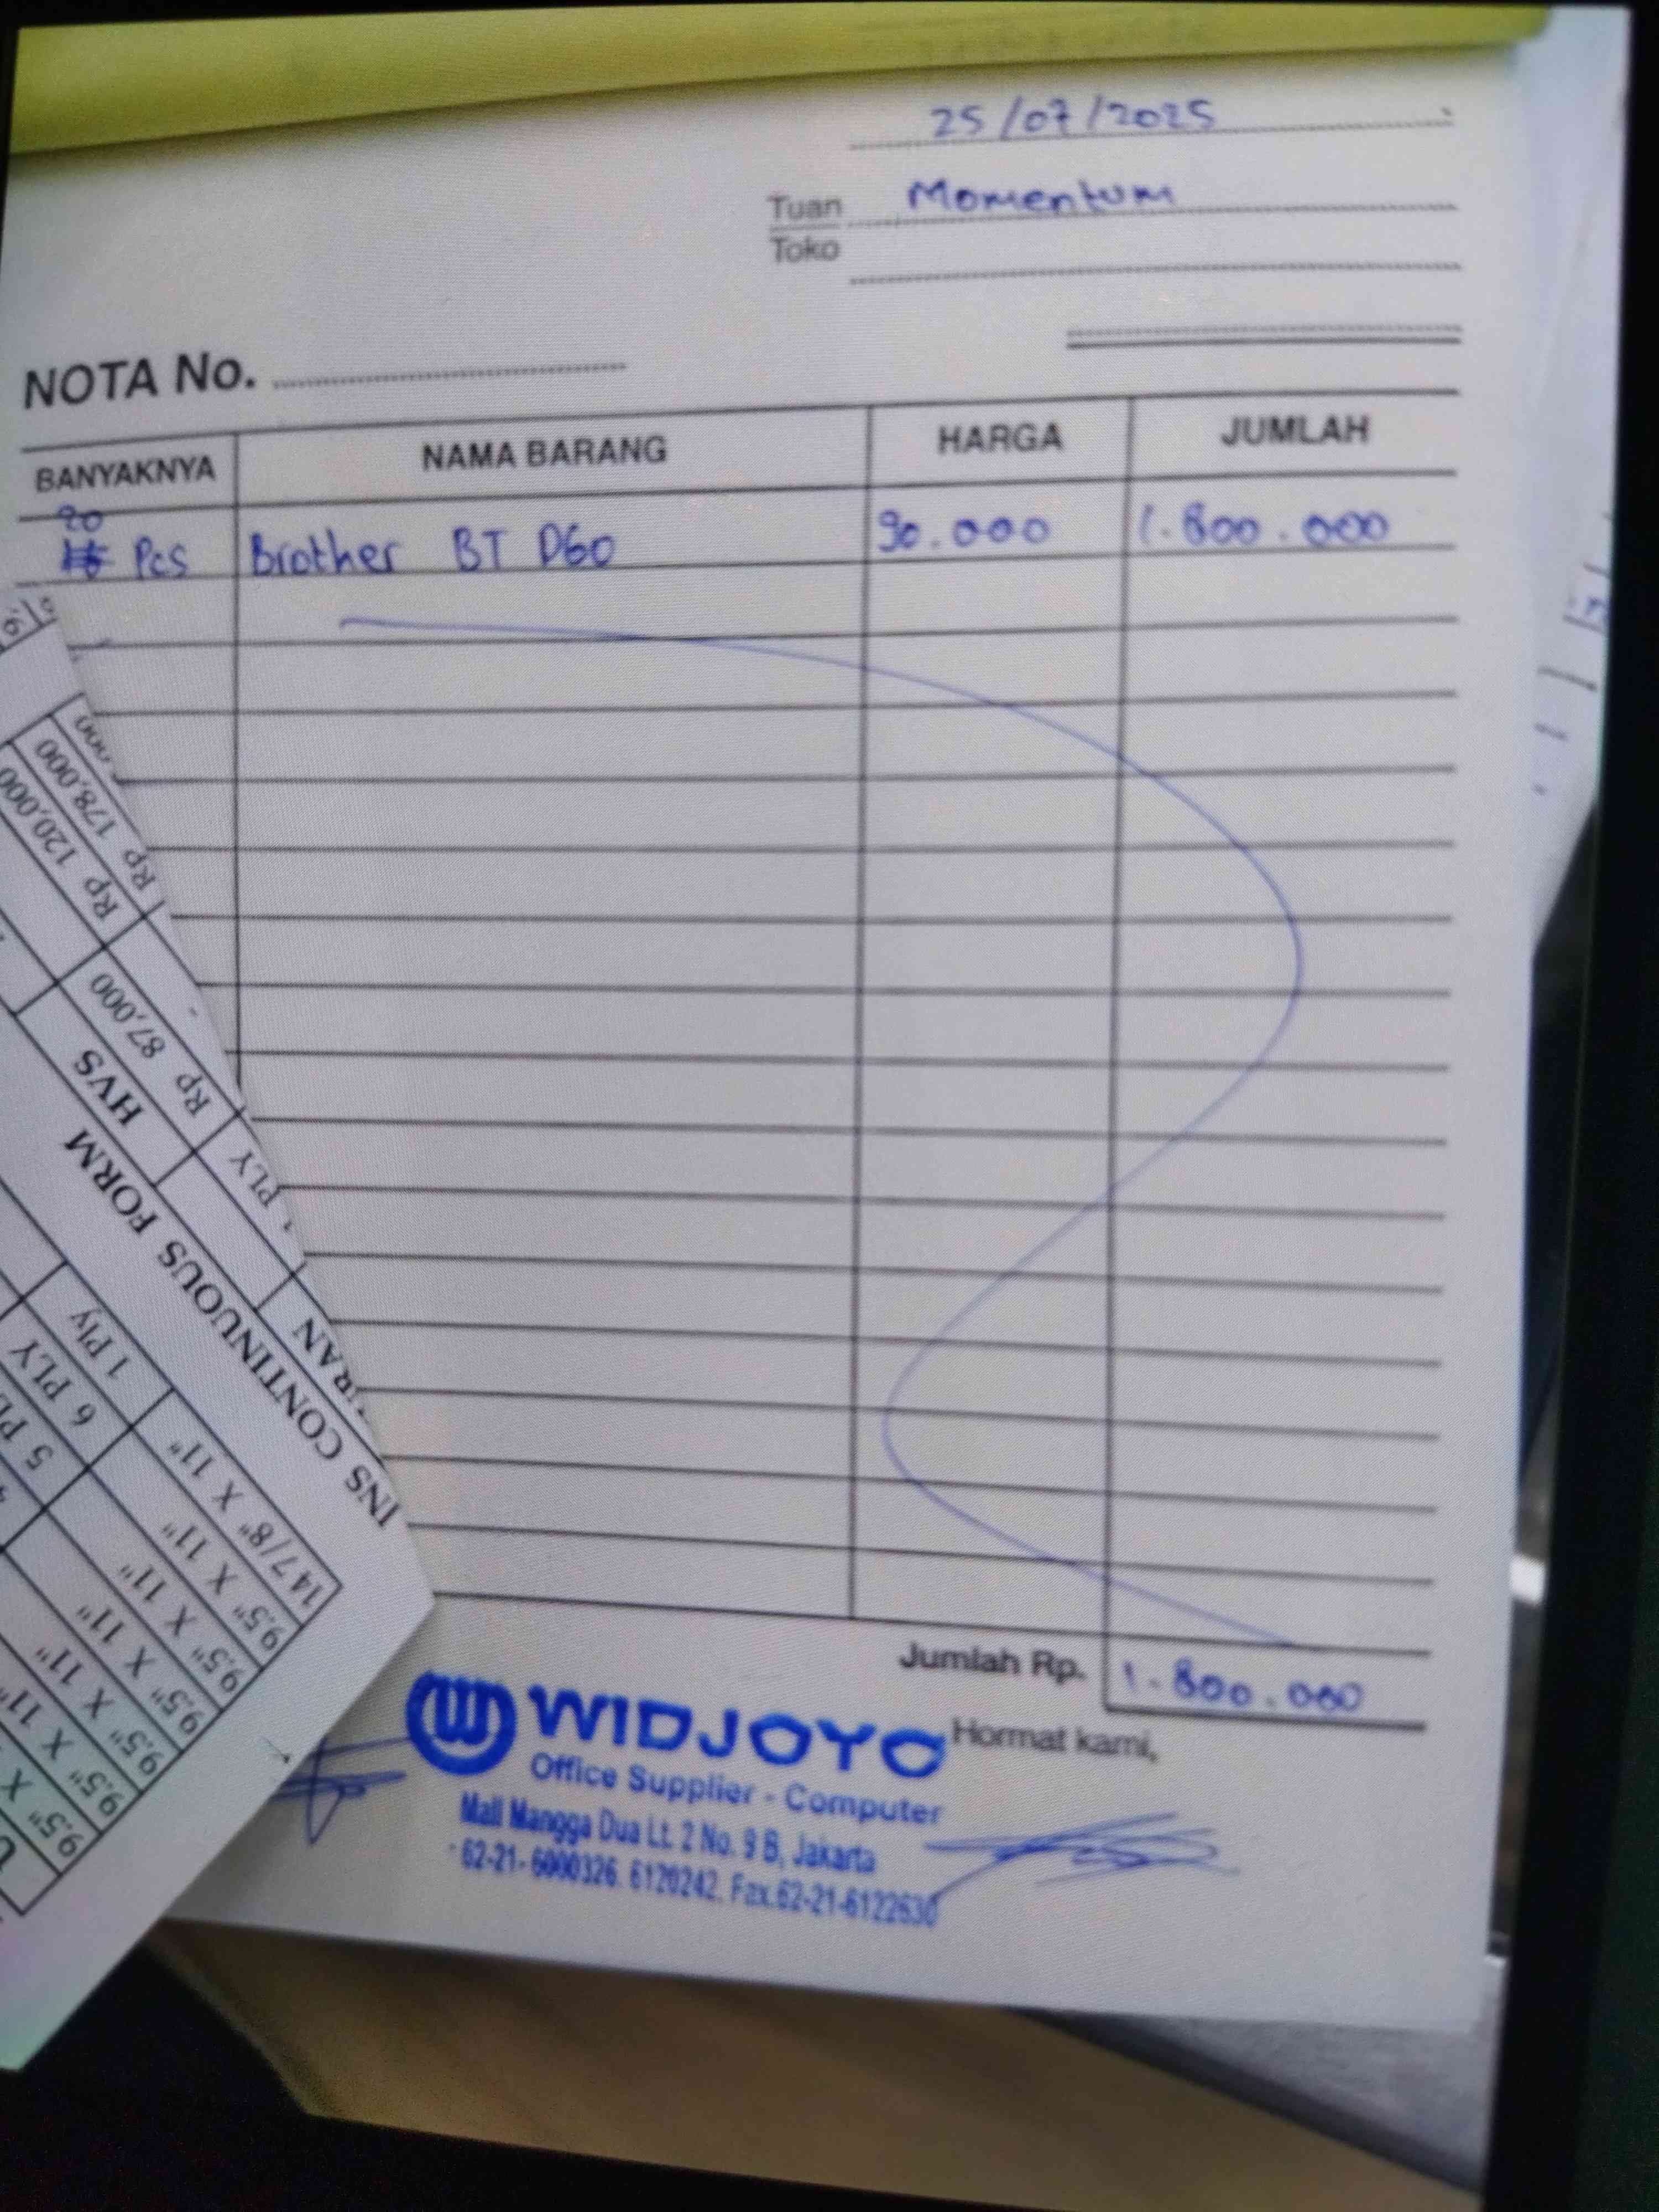 25/07/2025
Tuan Momentum
Toko
NOTA No.
BANYAKNYA NAMA BARANG HARGA JUMLAH
20
Pcs Brother BT D60 90.000 1.800.000
Jumlah Rp. 1.800.000
Hormat kami,
WIDJOYO
Office Supplier - Computer
Mall Mangga Dua Lt. 2 No. 9 B, Jakarta
62-21-6000326. 6120242. Fax.62-21-6122630
INS CONTINUOUS FORM
HVS
1 PLY Rp 87,000
Rp 120,000
Rp 178,000
14 7/8" X 11" 1 Ply
9,5" X 11" 6 PLY
9,5" X 11"
9,5" X 11"
9,5" X 11"